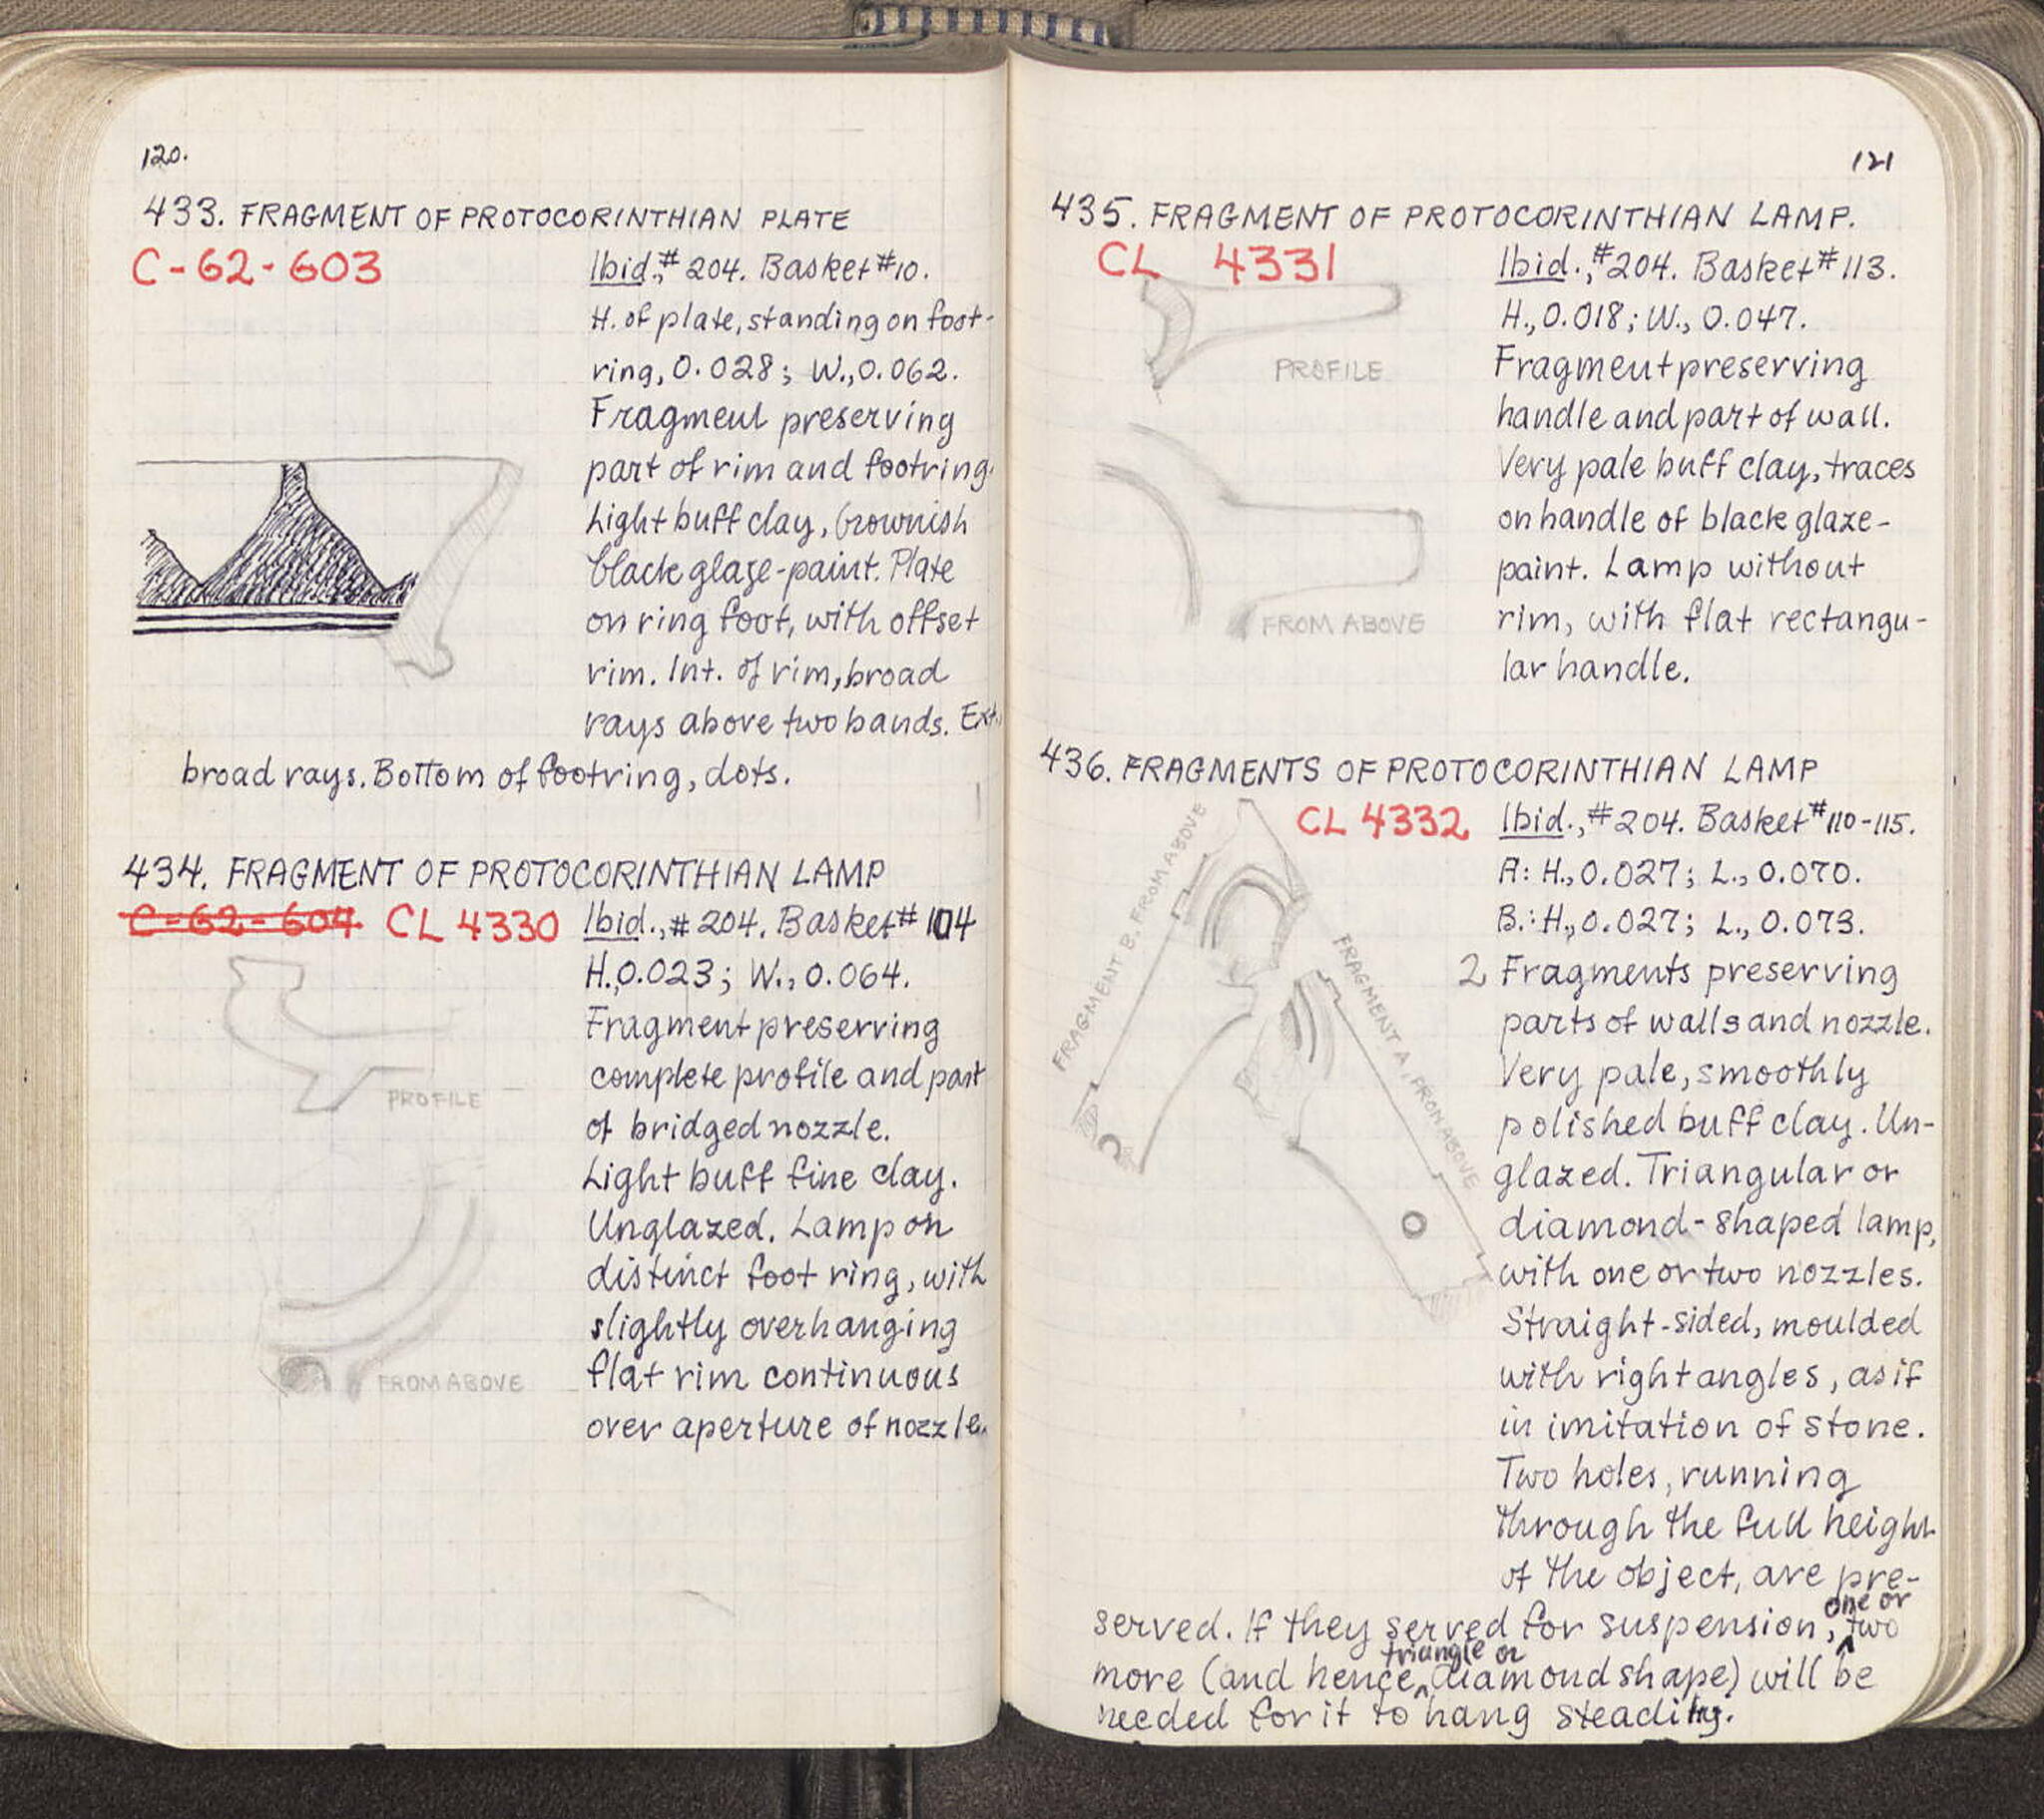 120.
433. FRAGMENT OF PROTOCORINTHIAN PLATE
C-62-603
Ibid., # 204. Basket #10.
H. of plate, standing on foot-
ring, 0.028; W., 0.062.
Fragment preserving
part of rim and footring.
Light buff clay, brownish
black glaze-paint. Plate
on ring foot, with offset
rim. Int. of rim, broad
rays above two bands. Ext.
broad rays. Bottom of footring, dots.
434. FRAGMENT OF PROTOCORINTHIAN LAMP
C-62-604 CL 4330
Ibid., # 204. Basket # 104
H., 0.023; W., 0.064.
Fragment preserving
complete profile and part
of bridged nozzle.
Light buff fine clay.
Unglazed. Lamp on
distinct foot ring, with
slightly overhanging
flat rim continuous
over aperture of nozzle.
PROFILE
FROM ABOVE
121
435. FRAGMENT OF PROTOCORINTHIAN LAMP.
CL 4331
Ibid., #204. Basket #113.
H., 0.018; W., 0.047.
Fragment preserving
handle and part of wall.
Very pale buff clay, traces
on handle of black glaze-
paint. Lamp without
rim, with flat rectangu-
lar handle.
PROFILE
FROM ABOVE
436. FRAGMENTS OF PROTOCORINTHIAN LAMP
CL 4332
Ibid., #204. Basket #110-115.
A: H., 0.027; L., 0.070.
B.: H., 0.027; L., 0.073.
2 Fragments preserving
parts of walls and nozzle.
Very pale, smoothly
polished buff clay. Un-
glazed. Triangular or
diamond-shaped lamp,
with one or two nozzles.
Straight-sided, moulded
with right angles, as if
in imitation of stone.
Two holes, running
through the full height
of the object, are pre-
served. If they served for suspension, one or two
more (and hence triangle or diamond shape) will be
needed for it to hang steadily.
FRAGMENT B, FROM ABOVE
FRAGMENT A, FROM ABOVE